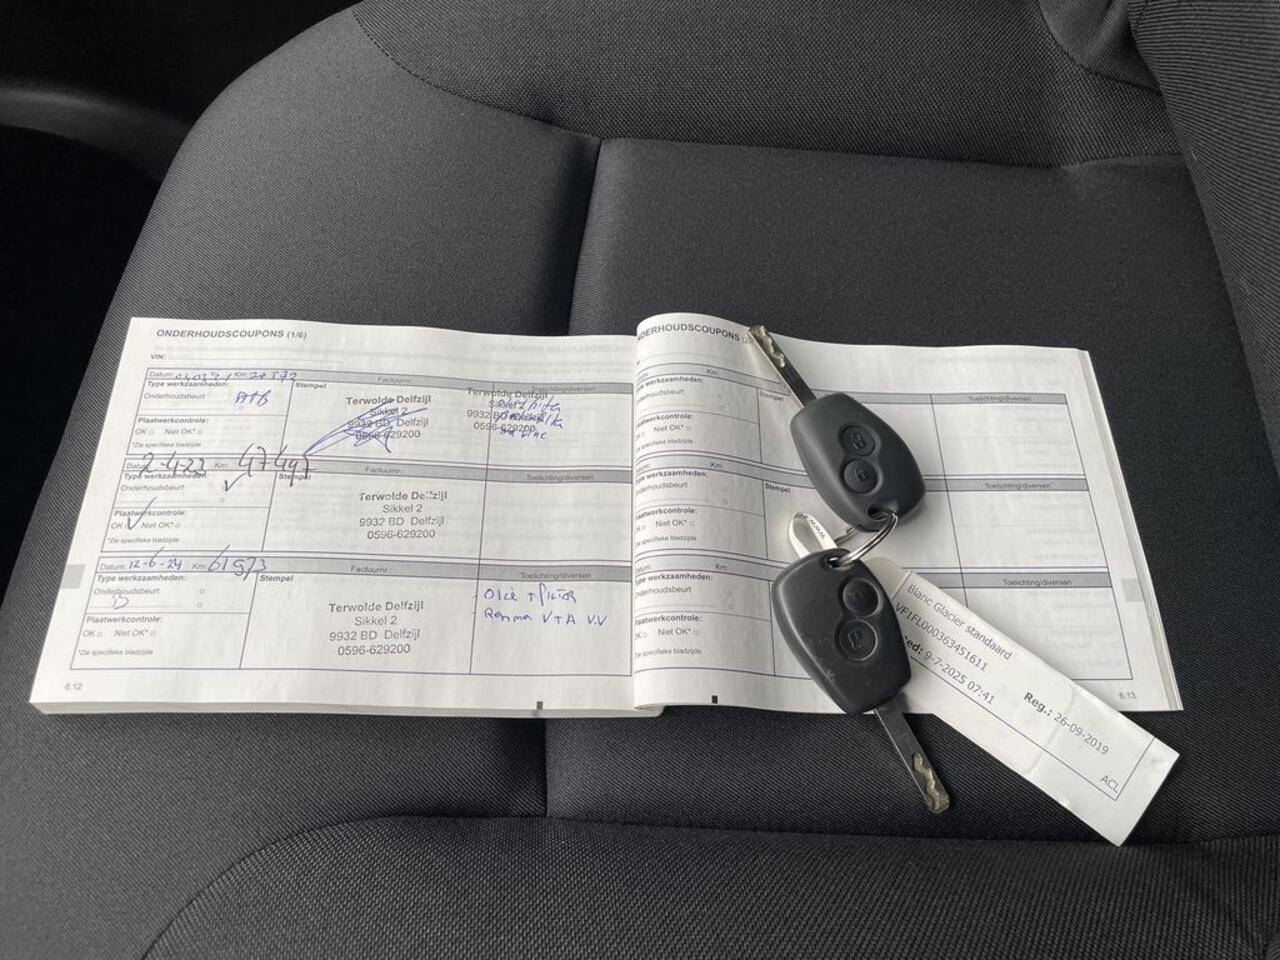 ONDERHOUDSCOUPONS (1/6)
VIN:
Datum: Km: Factuurnr.: Toelichting/diversen
Type werkzaamheden: Stempel
Onderhoudsbeurt
Terwolde Delfzijl
Sikkel 2
9932 BD Delfzijl
0596-629200
Terwolde Delfzijl
Plaatwerkcontrole:
OK Niet OK*
*Zie specifieke bladzijde
Datum: 2-4-23 Km: 47497 Factuurnr.: Toelichting/diversen
Type werkzaamheden: Stempel
Onderhoudsbeurt
Terwolde Delfzijl
Sikkel 2
9932 BD Delfzijl
0596-629200
Plaatwerkcontrole:
OK Niet OK*
*Zie specifieke bladzijde
Datum: 12-6-24 Km: 61973 Factuurnr.: Toelichting/diversen
Type werkzaamheden: Stempel
Onderhoudsbeurt
Terwolde Delfzijl
Sikkel 2
9932 BD Delfzijl
0596-629200
Olie + filter
Remmen V+A V.V
Plaatwerkcontrole:
OK Niet OK*
*Zie specifieke bladzijde
6.12
ONDERHOUDSCOUPONS
Toelichting/diversen
werkzaamheden: Stempel
Onderhoudsbeurt
Plaatwerkcontrole:
OK Niet OK*
*Zie specifieke bladzijde
Km: Toelichting/diversen
werkzaamheden: Stempel
Onderhoudsbeurt
Plaatwerkcontrole:
OK Niet OK*
*Zie specifieke bladzijde
Km: Toelichting/diversen
Type werkzaamheden:
Onderhoudsbeurt
Plaatwerkcontrole:
OK Niet OK*
*Zie specifieke bladzijde
6.13
www
Blanc Glacier standaard
VF1FL000363451611
ed: 9-7-2025 07:41
Reg.: 26-09-2019
ACL